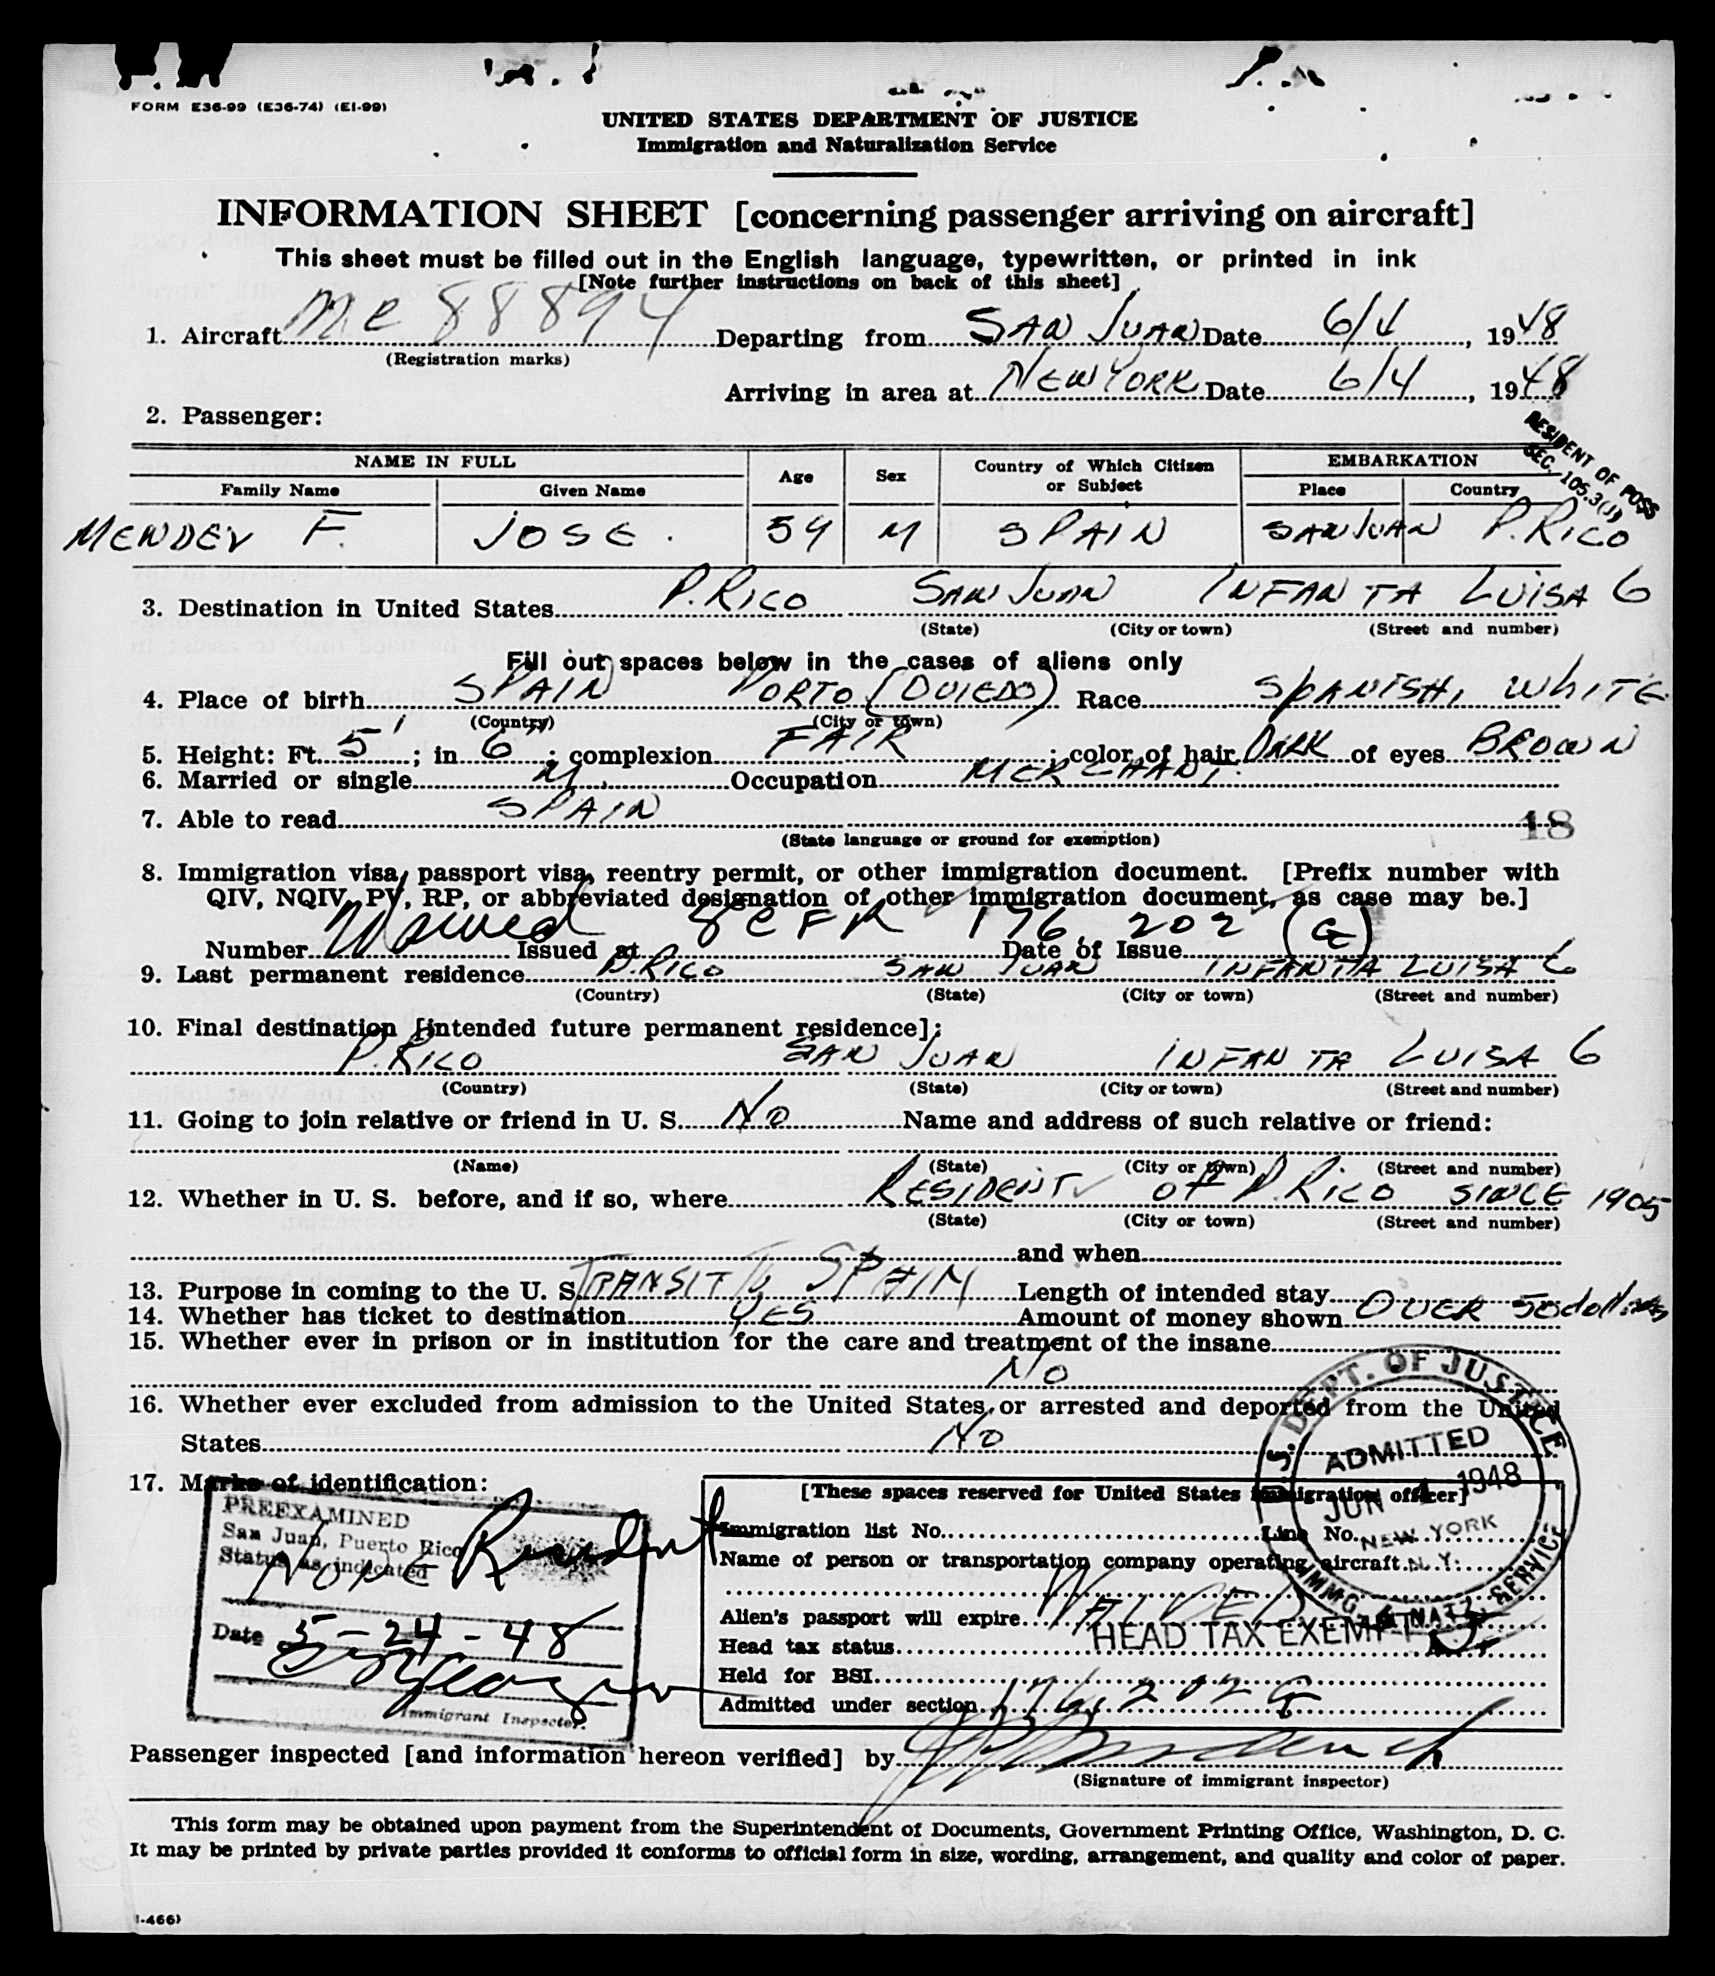 FORM E36-99 (E36-74) (EI-99)
UNITED STATES DEPARTMENT OF JUSTICE
Immigration and Naturalization Service
INFORMATION SHEET [concerning passenger arriving on aircraft]
This sheet must be filled out in the English language, typewritten, or printed in ink
[Note further instructions on back of this sheet]
1. Aircraft 88894 Departing from SAN JUAN Date 6/4, 1948
(Registration marks)
Arriving in area at NEW YORK Date 6/4, 1948
2. Passenger:
RESIDENT OF POSS
SEC. 105.3(J)
NAME IN FULL Age Sex Country of Which Citizen or Subject EMBARKATION
Family Name Given Name Place Country
F. JOSE. 59 M SPAIN SAN JUAN P.RICO
3. Destination in United States P.RICO SAN JUAN INFANTA LUISA 6
(State) (City or town) (Street and number)
Fill out spaces below in the cases of aliens only
4. Place of birth SPAIN PORTO (OVIEDO) Race SPANISH, WHITE
(Country) (City or town)
5. Height: Ft. 5'; in 6"; complexion FAIR; color of hair DARK of eyes BROWN
6. Married or single M. Occupation MERCHANT.
7. Able to read SPAIN
(State language or ground for exemption)
18
8. Immigration visa, passport visa, reentry permit, or other immigration document. [Prefix number with
QIV, NQIV, PV, RP, or abbreviated designation of other immigration document, as case may be.]
Number Waived Issued at 8 CFR 176.202 (G) Date of Issue
9. Last permanent residence P.RICO SAN JUAN INFANTA LUISA 6
(Country) (State) (City or town) (Street and number)
10. Final destination [intended future permanent residece]:
P.RICO SAN JUAN INFANTA LUISA 6
(Country) (State) (City or town) (Street and number)
11. Going to join relative or friend in U. S. NO Name and address of such relative or friend:
(Name) (State) (City or town) (Street and number)
12. Whether in U. S. before, and if so, where RESIDENT OF P.RICO SINCE 1905
(State) (City or town) (Street and number)
and when
13. Purpose in coming to the U. S. TRANSIT To SPAIN Length of intended stay
14. Whether has ticket to destination YES Amount of money shown OVER 50 dollars
15. Whether ever in prison or in institution for the care and treatment of the insane
NO
16. Whether ever excluded from admission to the United States, or arrested and deported from the United
States NO
17. Marks of identification:
NONE Resident
PREEXAMINED
San Juan, Puerto Rico
Status as indicated
Date 5-24-48
Immigrant Inspector.
U.S. DEPT. OF JUSTICE
ADMITTED
JUN 4 1948
NEW YORK
N. Y.
IMMIG. & NATZ. SERVICE
[These spaces reserved for United States immigration officer]
Immigration list No. Line No.
Name of person or transportation company operating aircraft
Alien's passport will expire WAIVED
Head tax status HEAD TAX EXEMPT
Held for BSI
Admitted under section 176.202 G
Passenger inspected [and information hereon verified] by
(Signature of immigrant inspector)
This form may be obtained upon payment from the Superintendent of Documents, Government Printing Office, Washington, D. C.
It may be printed by private parties provided it conforms to official form in size, wording, arrangement, and quality and color of paper.
I-466)